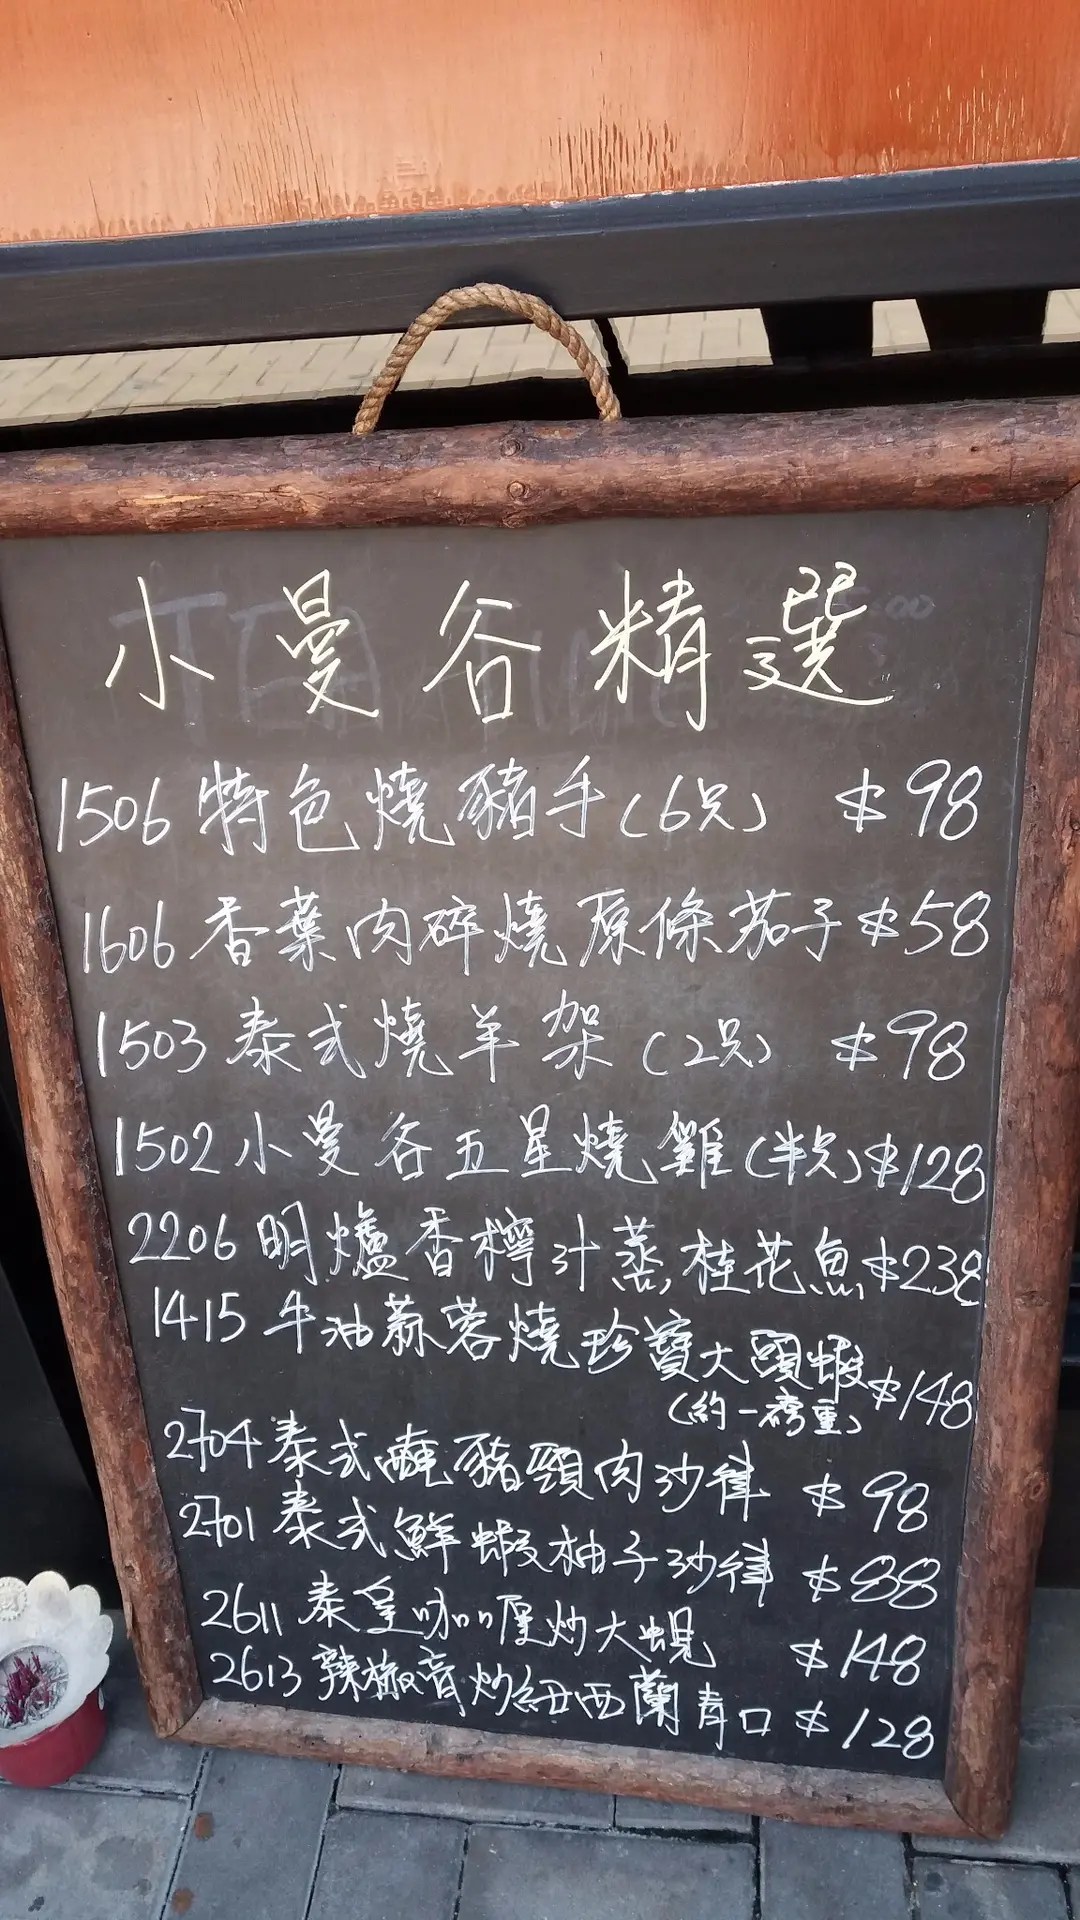 小曼谷精選
1506 特色燒豬手(6只) $98
1606 香葉肉碎燒原條茄子 $58
1503 泰式燒羊架(2只) $98
1502 小曼谷五星燒雞(半只) $128
2206 明爐香檸汁蒸桂花魚 $238
1415 牛油蒜蓉燒珍寶大頭蝦 $148
(約一磅重)
2704 泰式醃豬頸肉沙律 $98
2701 泰式鮮蝦柚子沙律 $88
2611 泰皇咖喱炒大蜆 $148
2613 辣椒膏炒紐西蘭青口 $128